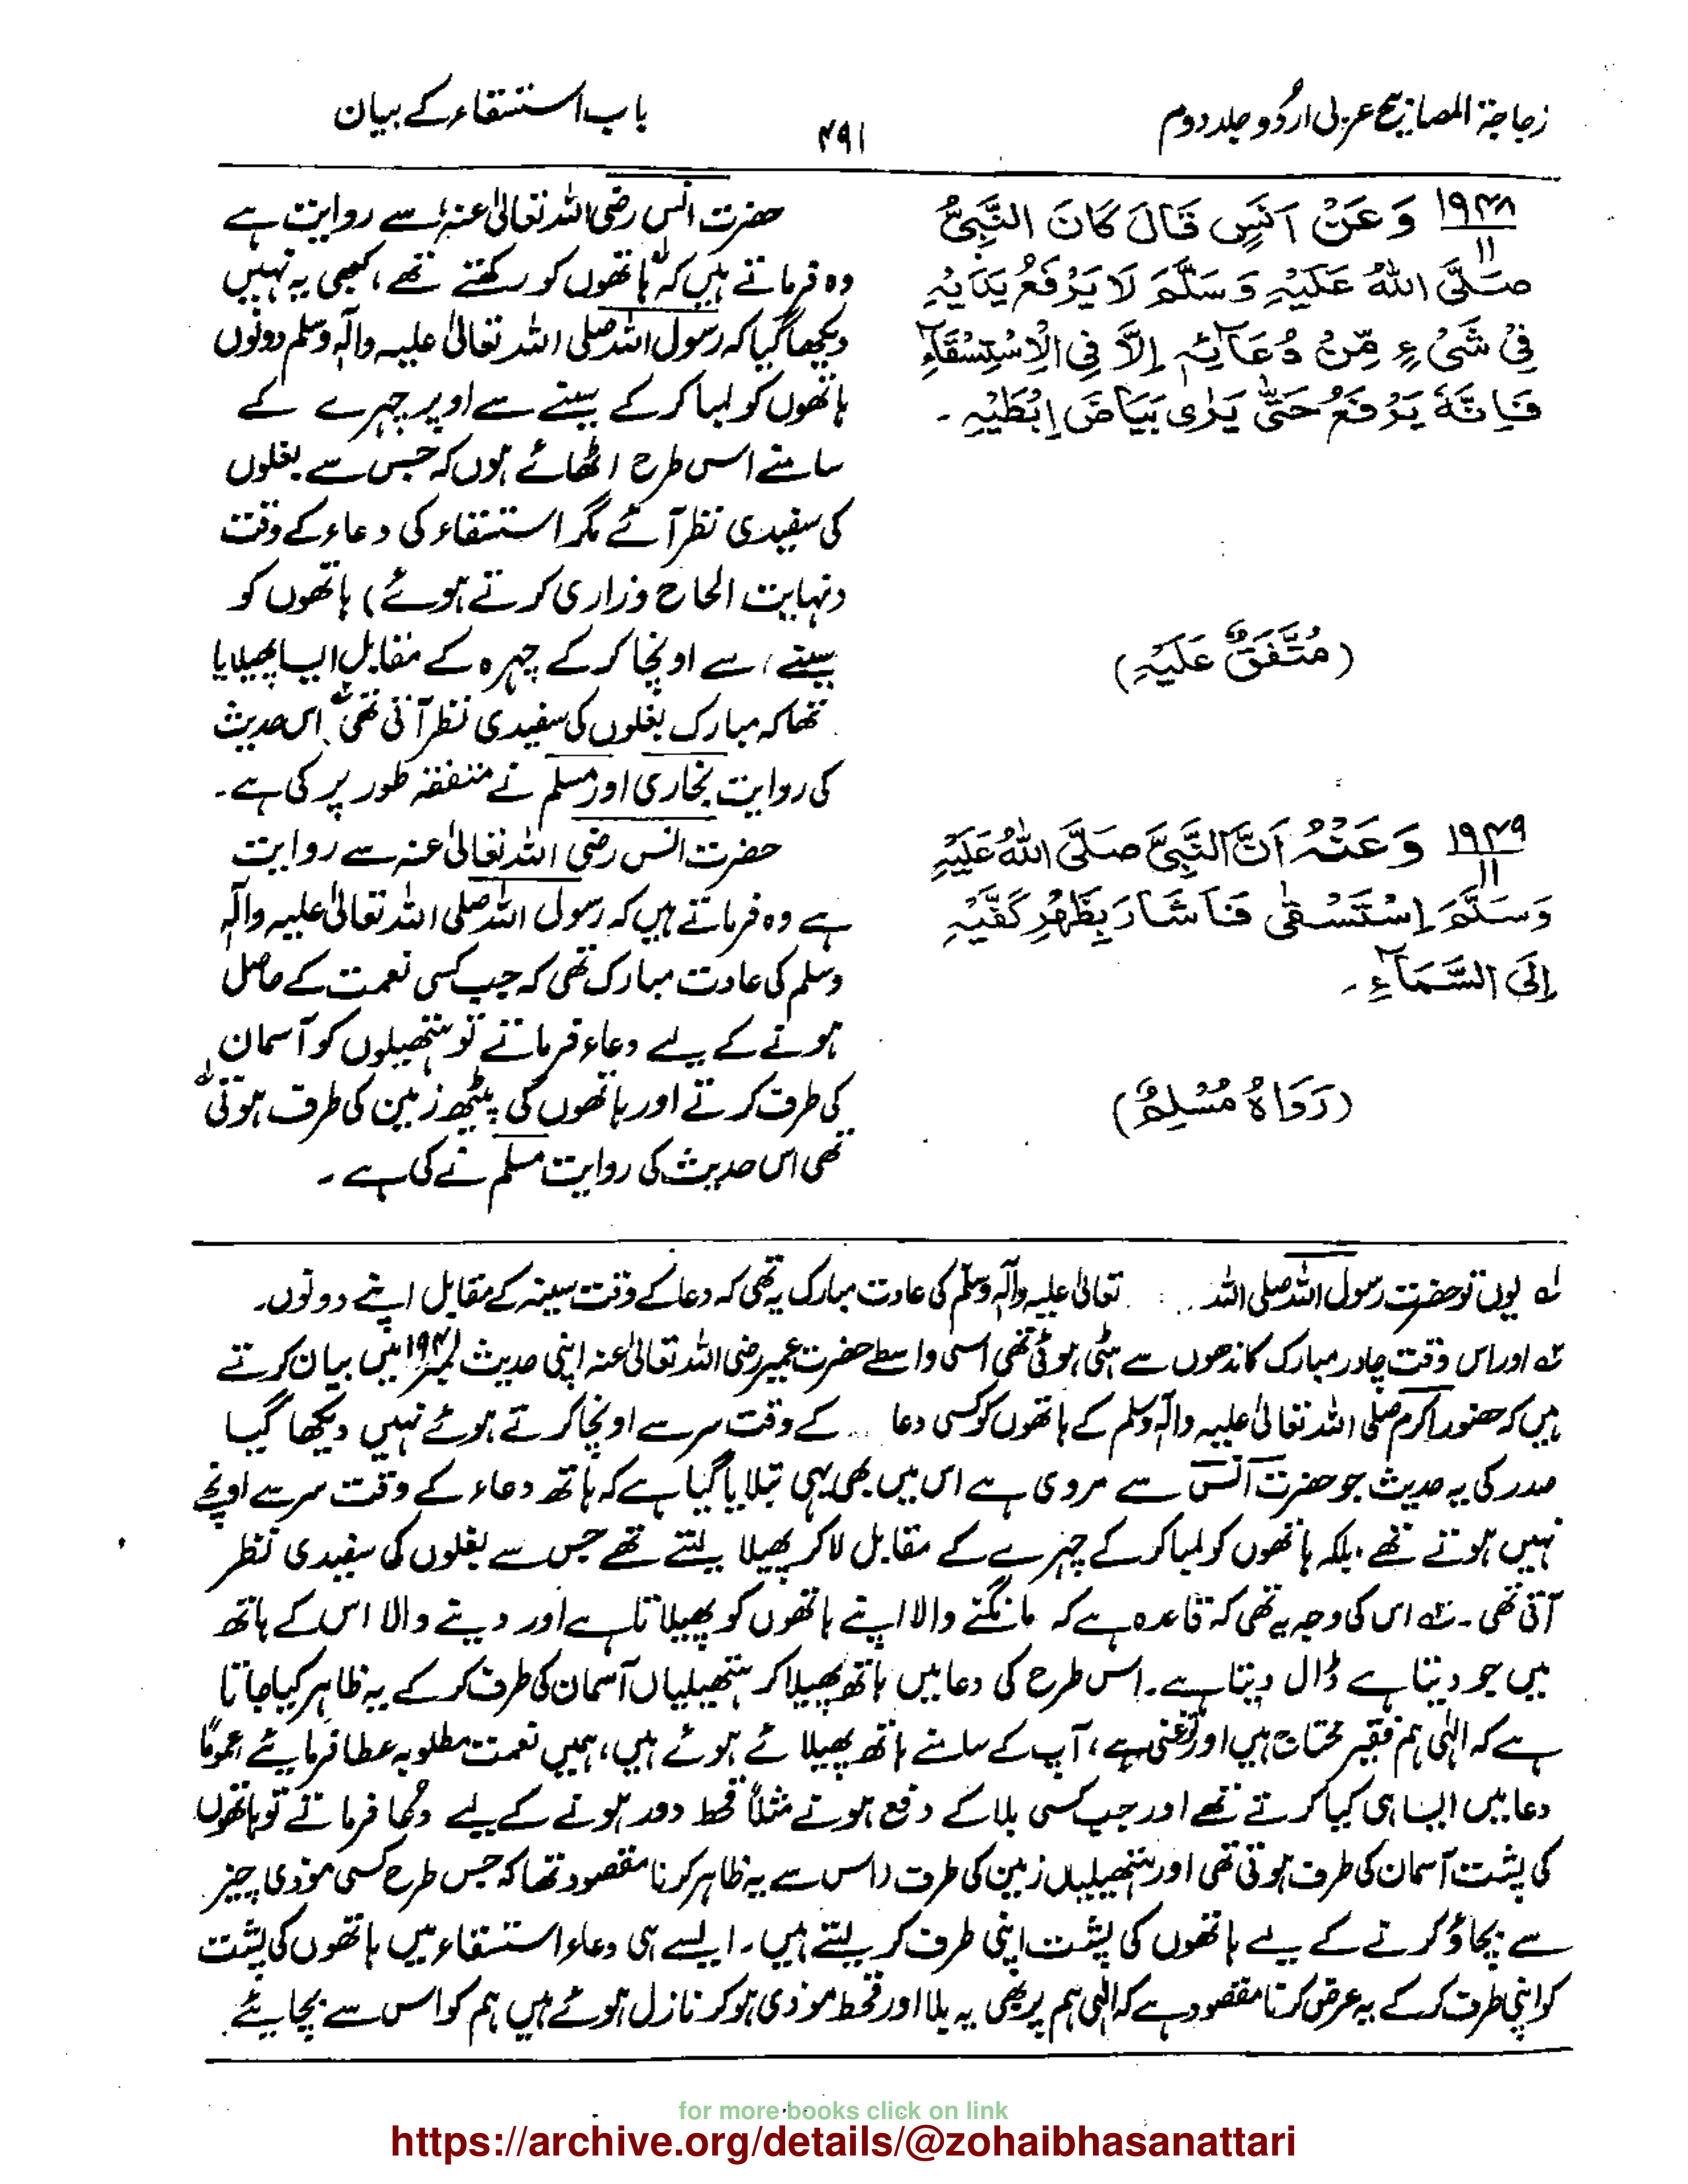 زجاجۃ المصابیح عربی اردُو جلد دوم
۴۹۱
باب استسقاء کے بیان
۱۹۴۸/۱۱ وَعَنْ اَنَسٍ قَالَ کَانَ النَّبِیُّ
صَلَّی اللّٰہُ عَلَیْہِ وَسَلَّمَ لَا یَرْفَعُ یَدَیْہِ
فِیْ شَیْءٍ مِّنْ دُعَآئِہٖ اِلَّا فِی الْاِسْتِسْقَآءِ
فَاِنَّہٗ یَرْفَعُ حَتّٰی یُرٰی بَیَاضَ اِبْطَیْہِ ۔
(مُتَّفَقٌ عَلَیْہِ)
۱۹۴۹/۱۱ وَعَنْہُ اَنَّ النَّبِیَّ صَلَّی اللّٰہُ عَلَیْہِ
وَسَلَّمَ اِسْتَسْقٰی فَاَشَارَ بِظَھْرِ کَفَّیْہِ
اِلَی السَّمَآءِ ۔
(رَوَاہُ مُسْلِمٌ)
حضرت انس رضی اللہ تعالیٰ عنہ سے روایت ہے
وہ فرماتے ہیں کہ ہاتھوں کو رکھتے تھے، کبھی یہ نہیں
دیکھا گیا کہ رسول اللہ صلی اللہ تعالیٰ علیہ وآلہٖ وسلم دونوں
ہاتھوں کو لمبا کر کے سینے سے اوپر چہرے کے
سامنے اس طرح اٹھائے ہوں کہ جس سے بغلوں
کی سفیدی نظر آئے مگر استسقاء کی دعاء کے وقت
(نہایت الحاح وزاری کرتے ہوئے) ہاتھوں کو
سینے سے اونچا کر کے چہرہ کے مقابل ایسا پھیلایا
تھا کہ مبارک بغلوں کی سفیدی نظر آتی تھی اس حدیث
کی روایت بخاری اور مسلم نے متفقہ طور پر کی ہے۔
حضرت انس رضی اللہ تعالیٰ عنہ سے روایت
ہے وہ فرماتے ہیں کہ رسول اللہ صلی اللہ تعالیٰ علیہ وآلہٖ
وسلم کی عادت مبارک تھی کہ جب کسی نعمت کے حاصل
ہونے کے لیے دعاء فرماتے تو ہتھیلوں کو آسمان
کی طرف کرتے اور ہاتھوں کی پیٹھ زمین کی طرف ہوتی
تھی اس حدیث کی روایت مسلم نے کی ہے ۔
لہ یوں تو حضرت رسول اللہ صلی اللہ تعالیٰ علیہ وآلہٖ وسلم کی عادت مبارک یہ تھی کہ دعا کے وقت سینہ کے مقابل اپنے دونوں۔
ٹہ اور اس وقت چادر مبارک کاندھوں سے ہٹی ہوئی تھی اسی واسطے حضرت عمیر رضی اللہ تعالیٰ عنہ اپنی حدیث میں بیان کرتے
ہیں کہ حضور اکرم صلی اللہ تعالیٰ علیہ وآلہٖ وسلم کے ہاتھوں کو کسی دعا کے وقت سر سے اونچا کرتے ہوئے نہیں دیکھا گیا
صدر کی یہ حدیث جو حضرت انسؓ سے مروی ہے اس میں بھی یہی بتلایا گیا ہے کہ ہاتھ دعاء کے وقت سر سے اونچے
نہیں ہوتے تھے، بلکہ ہاتھوں کو لمبا کر کے چہرے کے مقابل لا کر پھیلا لیتے تھے جس سے بغلوں کی سفیدی نظر
آتی تھی۔ تہ اس کی وجہ یہ تھی کہ قاعدہ ہے کہ مانگنے والا اپنے ہاتھوں کو پھیلاتا ہے اور دینے والا اس کے ہاتھ
میں جو دیتا ہے ڈال دیتا ہے۔ اس طرح کی دعا میں ہاتھ پھیلا کر ہتھیلیاں آسمان کی طرف کر کے یہ ظاہر کیا جاتا
ہے کہ الٰہی ہم فقیر محتاج ہیں اور تو غنی ہے، آپ کے سامنے ہاتھ پھیلائے ہوئے ہیں، ہمیں نعمت مطلوبہ عطا فرمایئے عموماً
دعا میں ایسا ہی کیا کرتے تھے اور جب کسی بلا کے دفع ہونے مثلاً قحط دور ہونے کے لیے دُعا فرماتے تو ہاتھوں
کی پشت آسمان کی طرف ہوتی تھی اور ہتھیلیاں زمین کی طرف (اس سے یہ ظاہر کرنا مقصود تھا کہ جس طرح کسی موذی چیز
سے بچاؤ کرنے کے لیے ہاتھوں کی پشت اپنی طرف کر لیتے ہیں۔ ایسے ہی دعاء استسقاء میں ہاتھوں کی پشت
کو اپنی طرف کر کے یہ عرض کرنا مقصود ہے کہ الٰہی ہم پر بھی یہ بلا اور قحط موذی ہو کر نازل ہوئے ہیں ہم کو اس سے بچایئے۔
for more books click on link
https://archive.org/details/@zohaibhasanattari